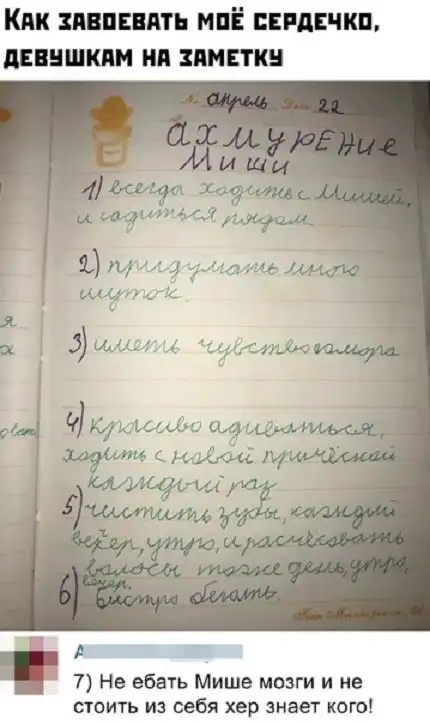 Как завоевать моё сердечко,
девушкам на заметку
№ апрель Date 22
ахмурение
Миши
1) всегда ходить с Мишей,
и садиться рядом
2) придумать много
шуток.
3) иметь чувство юмора
4) красиво адиваться,
ходить с новой причёской
каждый раз
5) чистить зубы, каждый
вечер, утро, и расчёсовать
волосы тоже день, утро,
вечер.
6) быстро бегать.
7) Не ебать Мише мозги и не
стоить из себя хер знает кого!